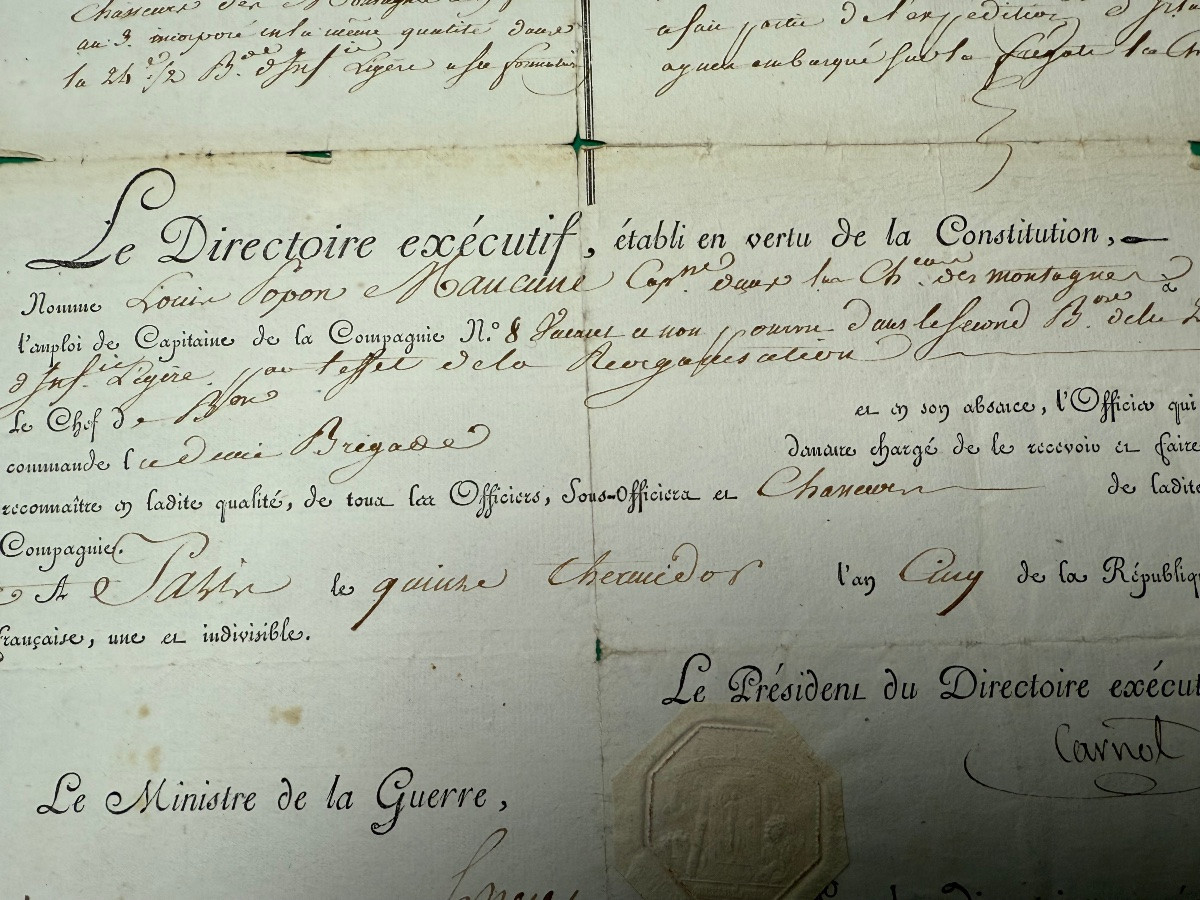 Chasseurs des Montagnes
au 3. incorporé en la même qualité dans
la 24.e 1/2 B.de d'Inf.ie Légère a sa formation
a fait partie de l'expédition d'Irla
ayant embarqué sur la frégate la
Le Directoire exécutif, établi en vertu de la Constitution,
Nomme Louis Popon Maucune Cap.ne dans les Ch.eurs des montagnes à
l'emploi de Capitaine de la Compagnie N.o 8 Vacant et non pourvu dans le second B.on de la 2
d'Inf.ie Légère par l'effet de la Reorganisation
Le Chef de B.on et en son absence, l'Officier qui
commande la demie Brigade demeure chargé de le recevoir et faire
reconnaître en ladite qualité, de tous les Officiers, Sous-Officiers et Chasseurs de ladite
Compagnie.
A Paris le quinze thermidor l'an Cinq de la Républiq
française, une et indivisible.
Le Président du Directoire exécut
Carnot
Le Ministre de la Guerre,